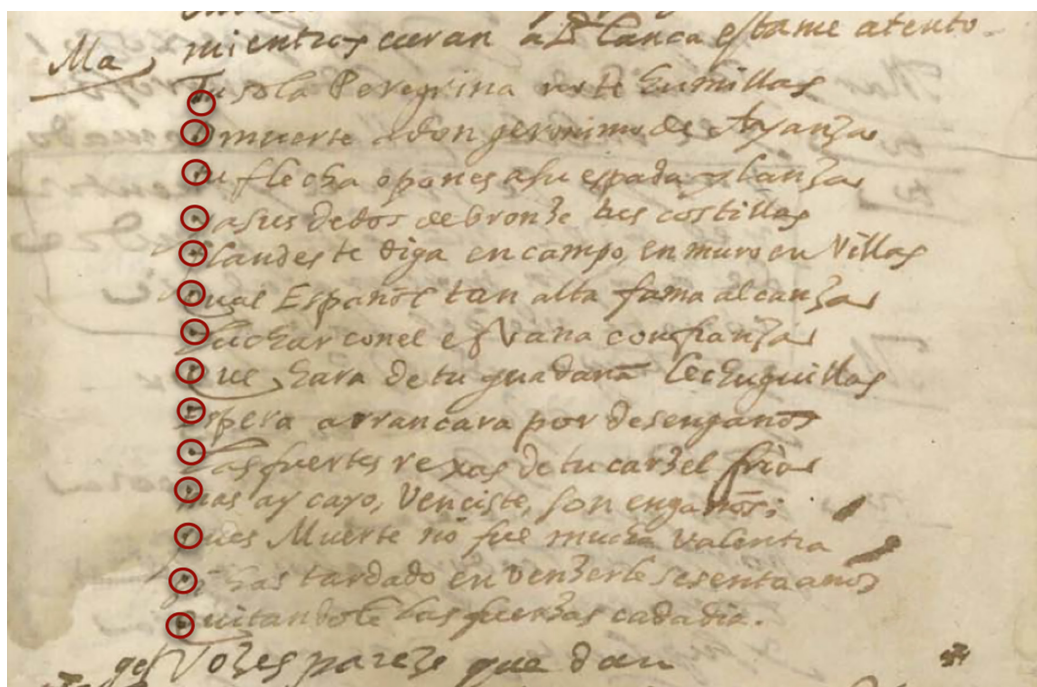 Ma, mientras curan a Blanca estame atento.
Tu sola Peregrina no te humillas
O muerte a don geronimo de Ayanza
tu flecha opones a su espada y lanza
y a sus dedos de bronze tus costillas
flandes te diga en campo, en muro en Villas
qual Español tan alta fama alcanza
luchar con el es Vana confianza
Que hara de tu guadaña lechuguillas
Espera arrancara por desengaños
las fuertes rexas de tu carzel fria
mas ay cayo, Venciste, son engaños;
pues Muerte no fue mucha Valentia
si has tardado en venzerle sesenta años
quitandole las fuerzas cada dia.
ge Vozes pareze que dan